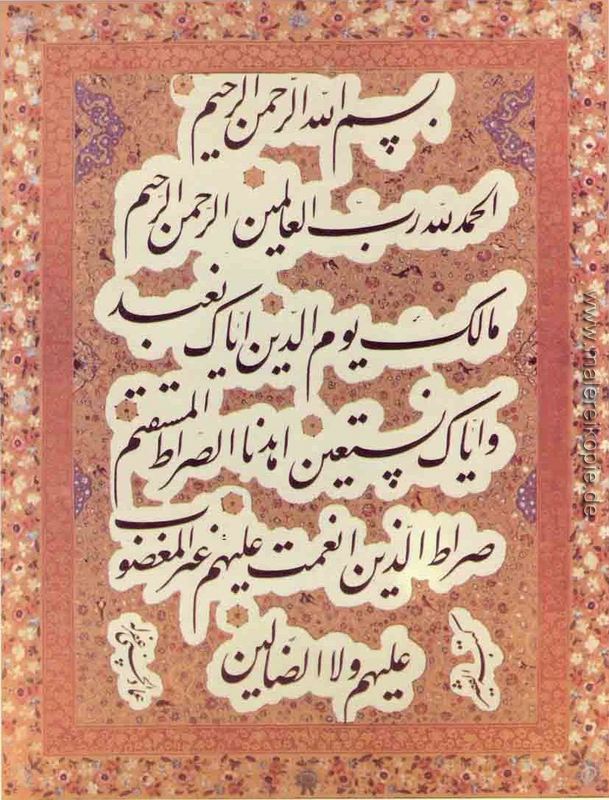 بسم الله الرحمن الرحیم
الحمد لله رب العالمین الرحمن الرحیم
مالک یوم الدین ایاک نعبد
وایاک نستعین اهدنا الصراط المستقیم
صراط الذین انعمت علیهم غیر المغضوب
علیهم ولا الضالین
کتبه الفقیر
عماد الحسنی غفر له
www.malereikopie.de